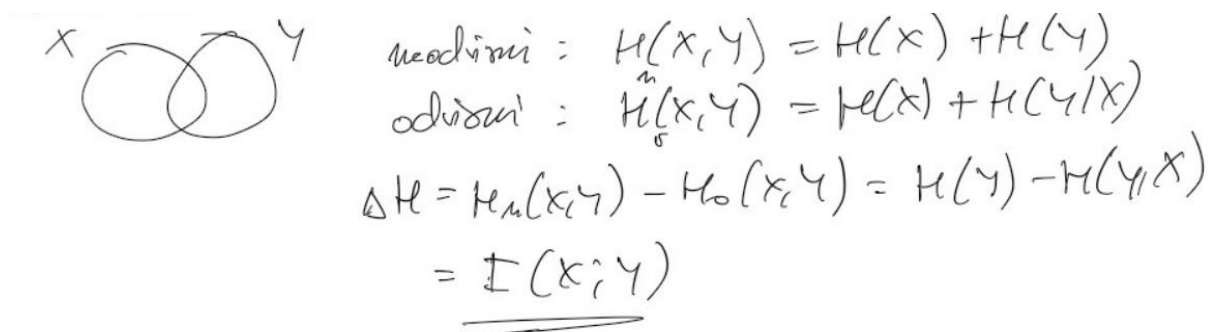 X Y
neodvisni : H_n(X,Y) = H(X) + H(Y)
odvisni : H_o(X,Y) = H(X) + H(Y|X)
ΔH = H_n(X,Y) - H_o(X,Y) = H(Y) - H(Y,X)
= I(X;Y)